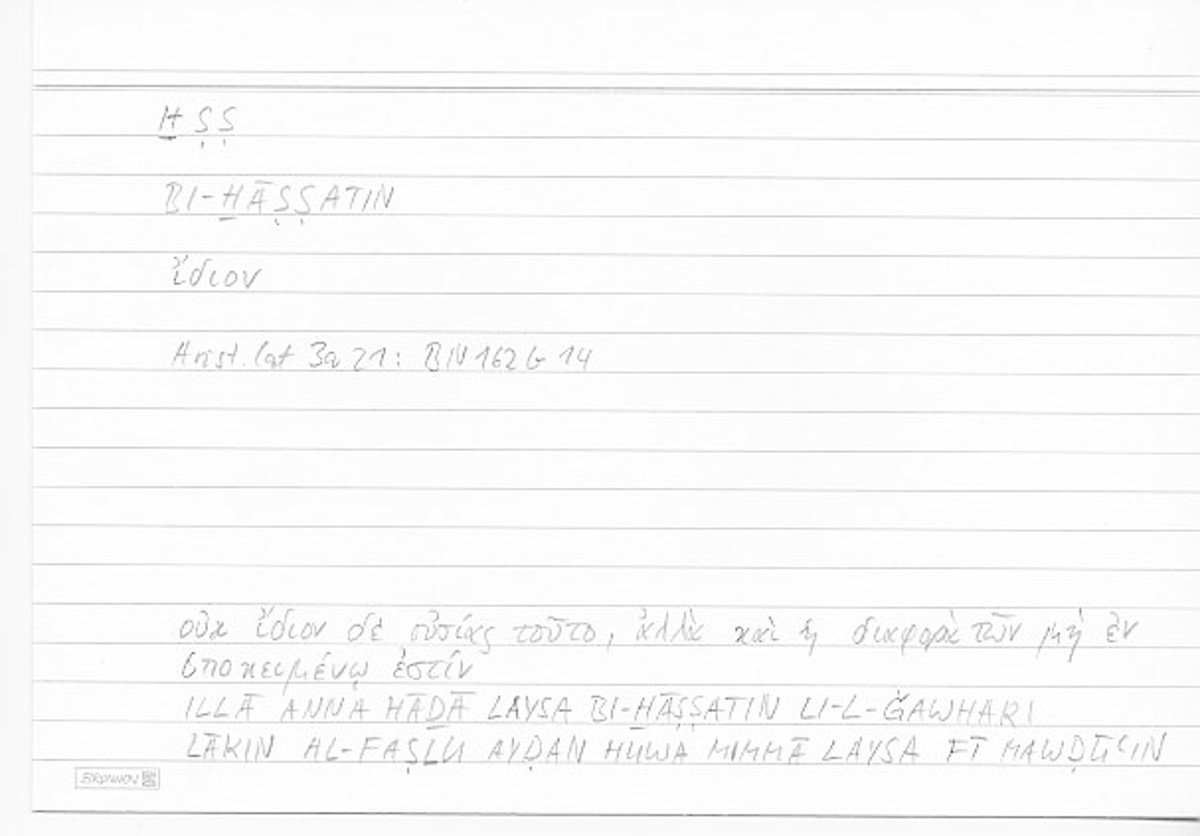 Ḫ Ṣ Ṣ
BI-ḪĀṢṢATIN
ἴδιον
Arist. Cat 3a 21: BN 162 b 14
οὐκ ἴδιον δὲ οὐσίας τοῦτο, ἀλλὰ καὶ ἡ διαφορὰ τῶν μὴ ἐν
ὑποκειμένῳ ἐστίν
ILLĀ ANNA HĀḎĀ LAYSA BI-ḪĀṢṢATIN LI-L-ĞAWHARI
LĀKIN AL-FAṢLU AYḌAN HUWA MIMMĀ LAYSA FĪ MAWḌŪʿIN